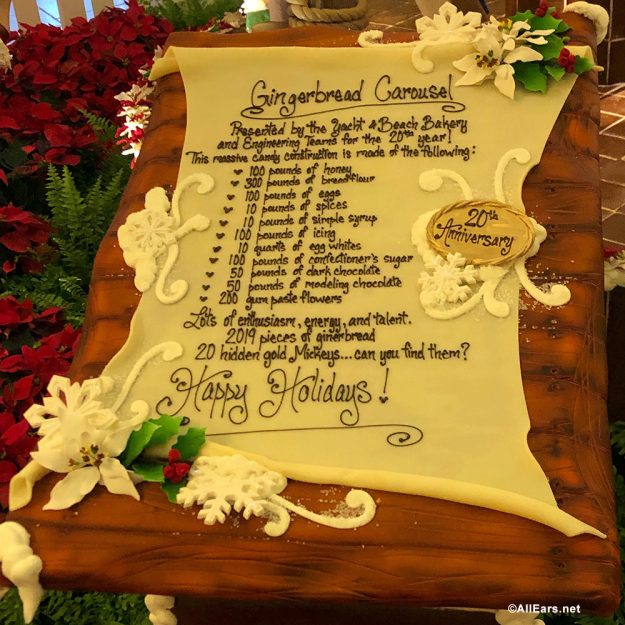 Gingerbread Carousel
Presented by the Yacht & Beach Bakery
and Engineering Teams for the 20th year!
This massive candy construction is made of the following:
100 pounds of honey
300 pounds of bread flour
100 pounds of eggs
10 pounds of spices
10 pounds of simple syrup
100 pounds of icing
10 quarts of egg whites
100 pounds of confectioner's sugar
50 pounds of dark chocolate
50 pounds of modeling chocolate
200 gum paste flowers
Lots of enthusiasm, energy, and talent.
2019 pieces of ginerbread
20 hidden gold Mickeys...can you find them?
Happy Holidays!
20th
Anniversary
©AllEars.net